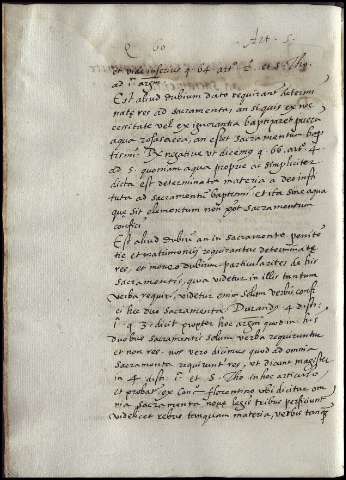 Q. 60 Art. 5.
et vide inferius q. 64 artº 2. et s. Tho.
ad 1 argm.
Est aliud dubium dato requirant determi
natę res ad sacramenta, an si quis ex ne
cessitate vel ex ignorantia baptiparet puerū
aqua rosasacea, an esset sacramentum bap
tismi? Negative ut dicemꝯ q. 66. artº. 4.
ad 5. quoniam aqua proprie ac simpliciter
dicta est determinata materia a deo insti
tuta ad sacramentū baptismi: et ita sine aqua
que sit elementum non pōt sacramentum
confici.
Est aliud dubiū an in sacramento peniten
tię et matrimonij requirantur determinatę
res, et moveo dubium particulariter de his
sacramentis, quia videtur in illis tantum
verba requiri, videtur enim solum verbis confi
ci hec duo sacramenta. Durandꝯ 4. disti.
1. q. 3. dicit propter hoc argm̄ quod in his
duobus sacramentis solum verba requiruntur
et non res. nos vero dicimus quod ad omnia
sacramenta requirunt res, ut dicunt magister
in 4. disti. 1ª et s. Tho. in hoc articulo
et probat ex Conº. florentino ubi dicitur om
nia sacramenta novę legis tribus perficiunt
videlicet rebus tamquam materia, verbis tanq̄